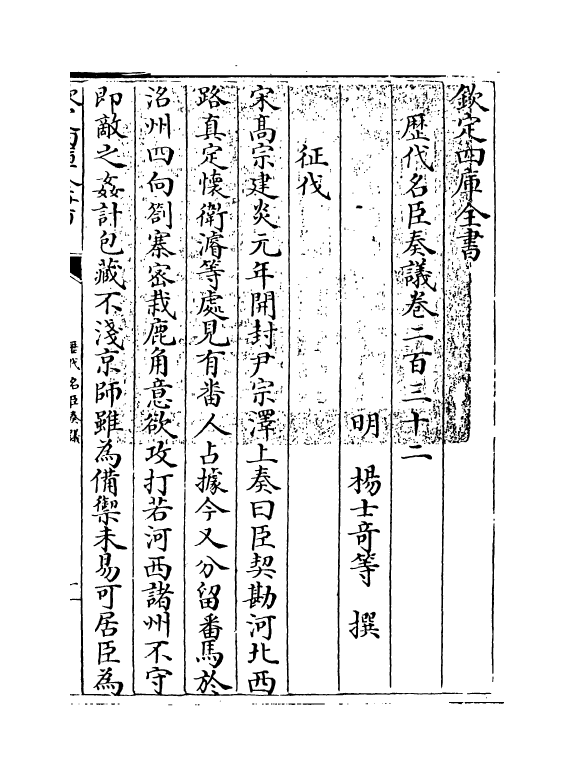 欽定四庫全書
歴代名臣奏議卷二百三十二
明 楊士奇等 撰
征伐
宋髙宗建炎元年開封尹宗澤上奏曰臣契勘河北西
路真定懷衛濬等處見有畨人占據今又分留番馬於
洺州四向劄寨密栽鹿角意欲攻打若河西諸州不守
即敵之姦計包藏不淺京師雖為備禦未易可居臣為
歴代名臣奏議